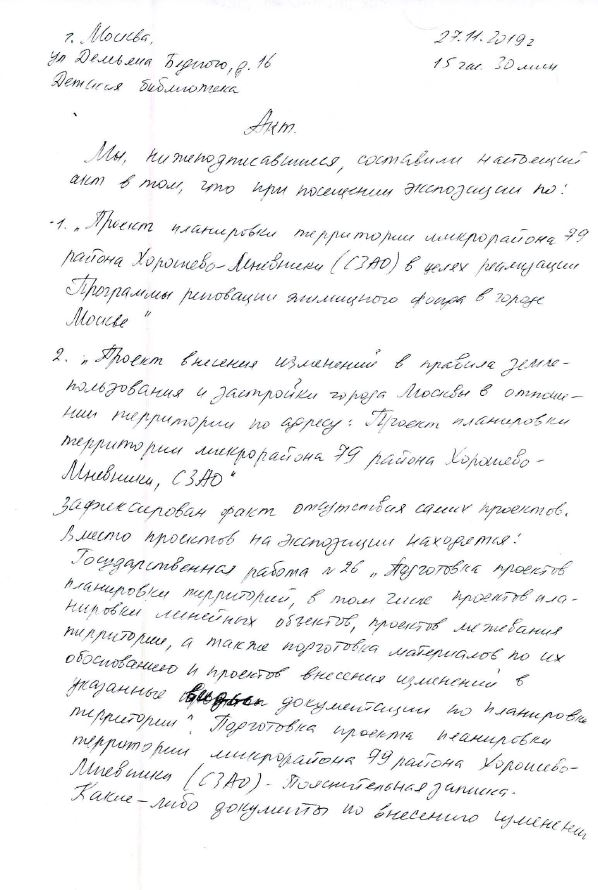 г. Москва,
27.11.2019г
ул Демьяна Бедного, д. 16
15 час. 30 мин
Детская библиотека
Акт.
Мы, нижеподписавшиеся, составили настоящий
акт в том, что при посещении экспозиции по:
1. „Проект планировки территории микрорайона 79
района Хорошево-Мневники (СЗАО) в целях реализации
Программы реновации жилищного фонда в городе
Москве"
2. „Проект внесения изменений в правила земле-
пользования и застройки города Москвы в отноше-
нии территории по адресу: Проект планировки
территории микрорайона 79 района Хорошево-
Мневники, СЗАО"
Зафиксирован факт отсутствия самих проектов.
Вместо проектов на экспозиции находится:
Государственная работа №26 „Подготовка проектов
планировки территорий, в том числе проектов пла-
нировки линейных объектов, проектов межевания
территории, а также подготовка материалов по их
обоснованию и проектов внесения изменений в
указанные документации по планировке
территории". Подготовка проекта планировки
территории микрорайона 79 района Хорошево-
Мневники (СЗАО). Пояснительная записка.
Какие-либо документы по внесению изменений